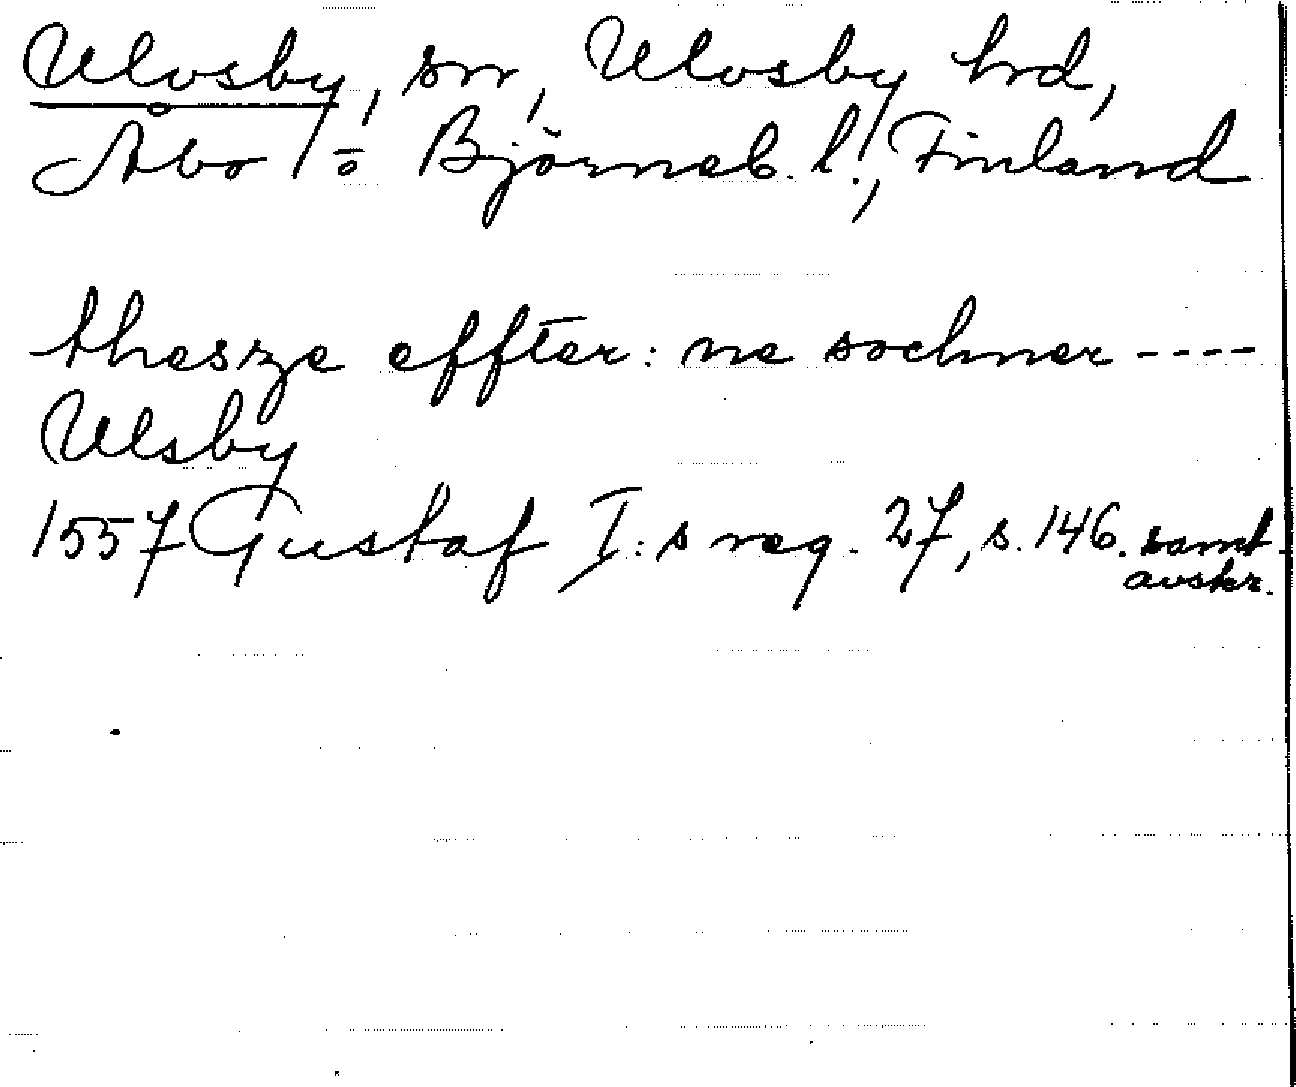 Ulvsby, sn, Ulvsby hrd,
Åbo o Björneb. l., Finland
thesze effter: ne sochner ----
Ulsby
1557 Gustaf I:s reg. 27, s. 146. samt.
avskr.